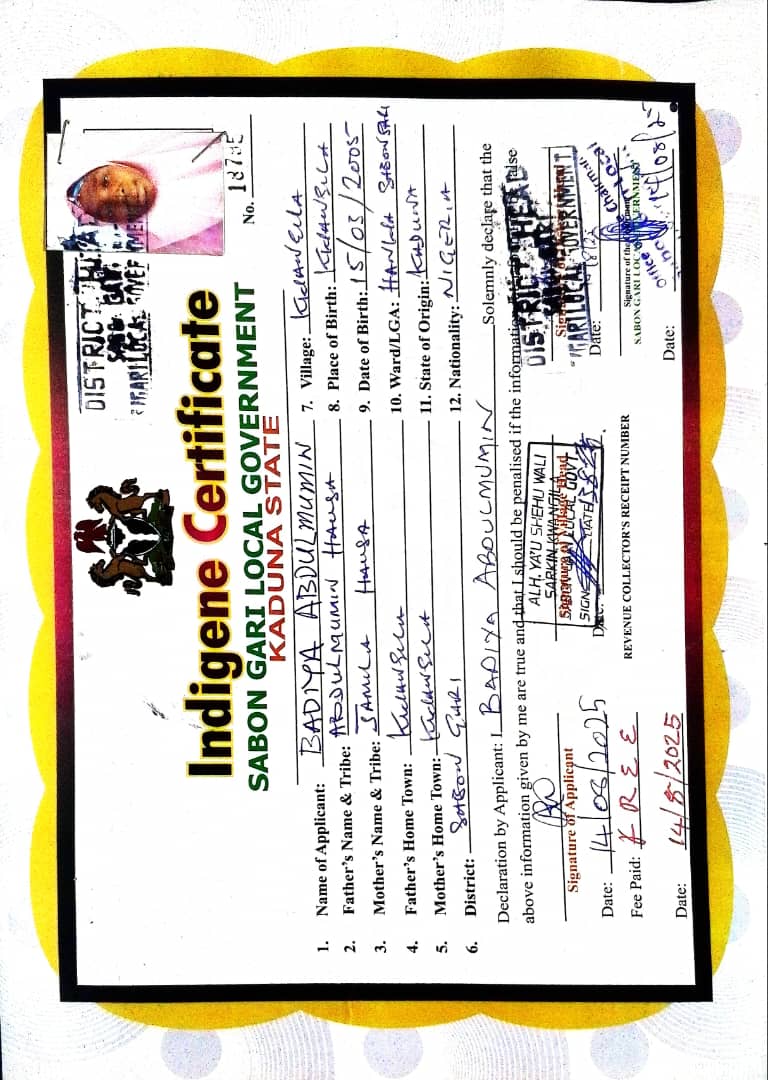 DISTRICT HEAD
SABON GARI
GARI LOCAL GOVERNMENT
No. 13735
Indigene Certificate
SABON GARI LOCAL GOVERNMENT
KADUNA STATE
1. Name of Applicant: BADIYA ABDULMUMIN
2. Father's Name & Tribe: ABDULMUMIN HAUSA
3. Mother's Name & Tribe: JAMILA HAUSA
4. Father's Home Town: KWANGILA
5. Mother's Home Town: KWANGILA
6. District: SABON GARI
7. Village: KWANGILA
8. Place of Birth: KWANGILA
9. Date of Birth: 15/03/2005
10. Ward/LGA: HANWA SABON GARI
11. State of Origin: KADUNA
12. Nationality: NIGERIA
Declaration by Applicant: I BADIYA ABDULMUMIN Solemnly declare that the
above information given by me are true and that I should be penalised if the information false
Signature of Applicant
Date: 14/08/2025
ALH. YA'U SHEHU WALI
SARKIN KWANGILA
Signature of Village Head
SIGN DATE
Date:
DISTRICT HEAD
GARI LOCAL GOVERNMENT
Date:
Fee Paid: FREE
REVENUE COLLECTOR'S RECEIPT NUMBER
Signature of the Chairman
SABON GARI LOCAL GOVERNMENT
Date: 14/8/2025
Date: 14/08/25